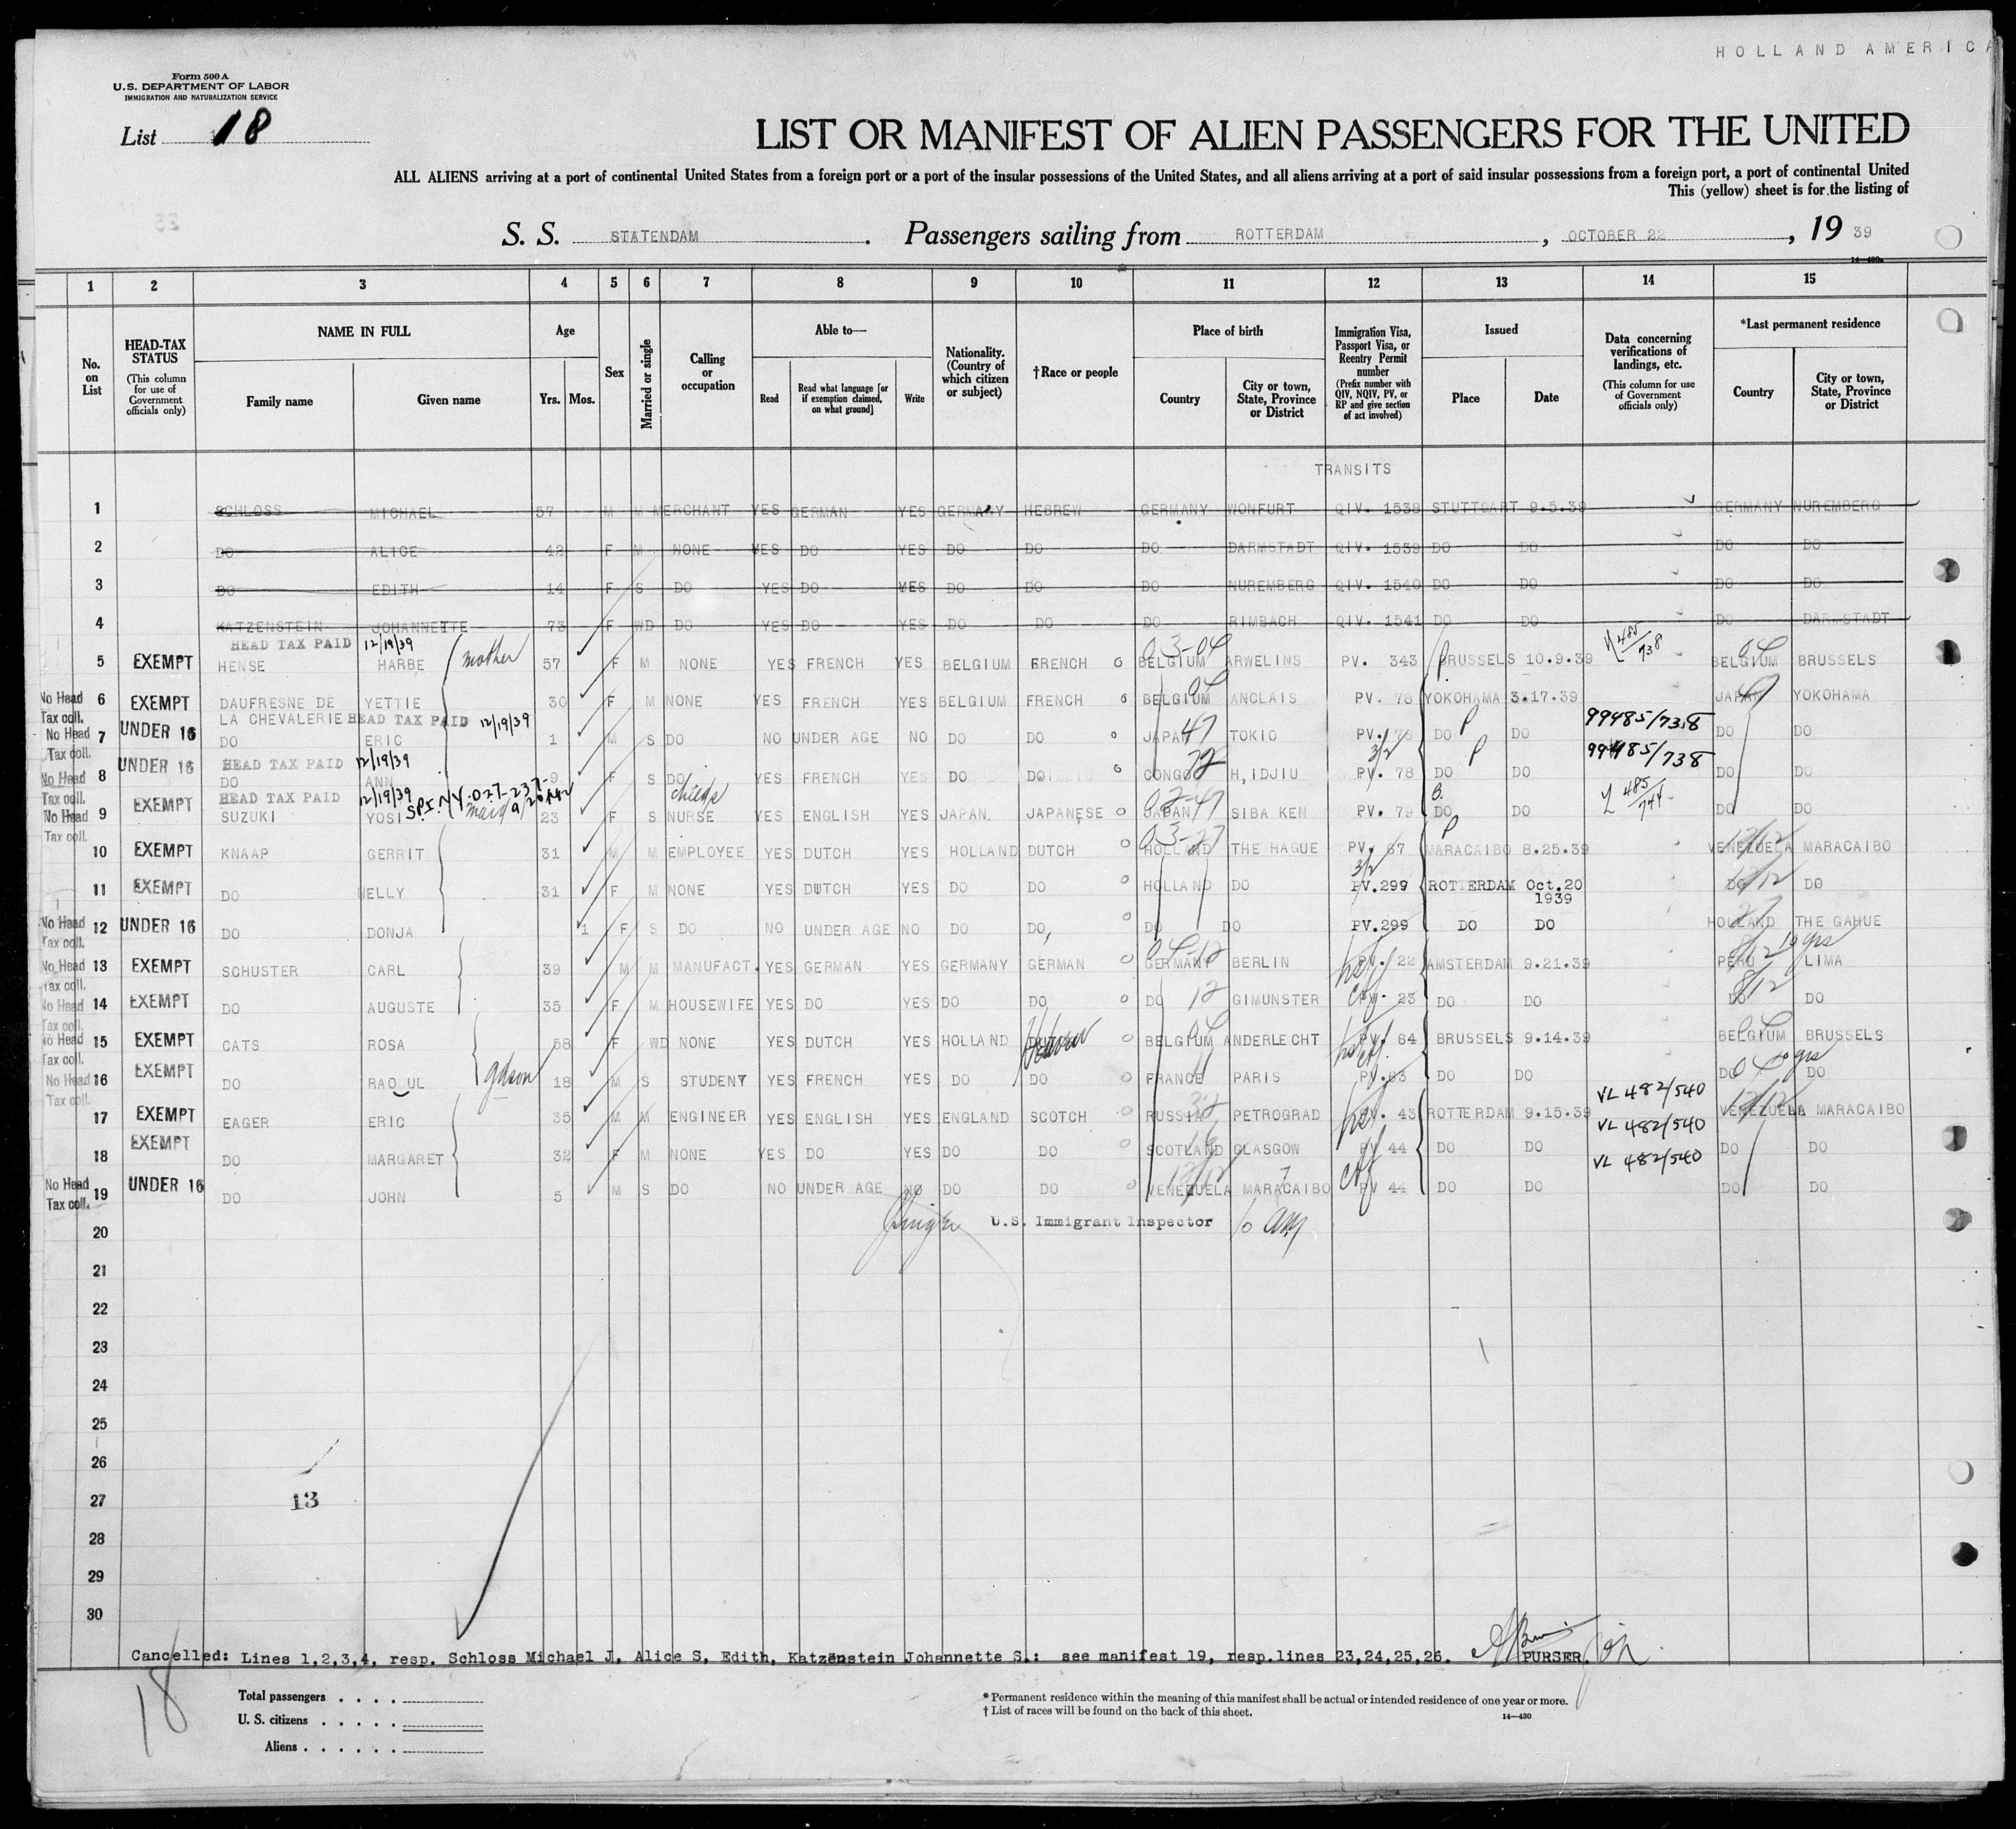 HOLLAND AMERICA
Form 500 A
U.S. DEPARTMENT OF LABOR
IMMIGRATION AND NATURALIZATION SERVICE
List 18
LIST OR MANIFEST OF ALIEN PASSENGERS FOR THE UNITED
ALL ALIENS arriving at a port of continental United States from a foreign port or a port of the insular possessions of the United States, and all aliens arriving at a port of said insular possessions from a foreign port, a port of continental United
This (yellow) sheet is for the listing of
S. S. STATENDAM. Passengers sailing from ROTTERDAM, OCTOBER 22, 19 39
1 2 3 4 5 6 7 8 9 10 11 12 13 14 15
No. on List
HEAD-TAX STATUS (This column for use of Government officials only)
NAME IN FULL Family name Given name
Age Yrs. Mos.
Sex
Married or single
Calling or occupation
Able to— Read Read what language [or if exemption claimed, on what ground] Write
Nationality. (Country of which citizen or subject)
†Race or people
Place of birth Country City or town, State, Province or District
Immigration Visa, Passport Visa, or Reentry Permit number (Prefix number with QIV, NQIV, PV, or RP and give section of act involved)
Issued Place Date
Data concerning verifications of landings, etc. (This column for use of Government officials only)
*Last permanent residence Country City or town, State, Province or District
TRANSITS
1 SCHLOSS MICHAEL 57 M M MERCHANT YES GERMAN YES GERMANY HEBREW GERMANY WONFURT QIV. 1538 STUTTGART 9.5.39 GERMANY NUREMBERG
2 DO ALICE 42 F M NONE YES DO YES DO DO DO DARMSTADT QIV. 1539 DO DO DO DO
3 DO EDITH 14 F S DO YES DO YES DO DO DO NUREMBERG QIV. 1540 DO DO DO DO
4 KATZENSTEIN JOHANNETTE 73 F WD DO YES DO YES DO DO DO RIMBACH QIV. 1541 DO DO DO DARMSTADT
HEAD TAX PAID 12/19/39
5 EXEMPT HENSE HARBE mother 57 F M NONE YES FRENCH YES BELGIUM FRENCH BELGIUM ARWELINS PV. 343 BRUSSELS 10.9.39 485/738 BELGIUM BRUSSELS
No Head Tax coll. 6 EXEMPT DAUFRESNE DE YETTIE 30 F M NONE YES FRENCH YES BELGIUM FRENCH BELGIUM ANCLAIS PV. 78 YOKOHAMA 3.17.39 JAPAN YOKOHAMA
LA CHEVALERIE HEAD TAX PAID 12/19/39
No Head Tax coll. 7 UNDER 16 DO ERIC 1 M S DO NO UNDER AGE NO DO DO JAPAN TOKIO PV. 78 DO DO 99485/738 DO DO
HEAD TAX PAID 12/19/39
No Head Tax coll. 8 UNDER 16 DO ANN 9 F S DO YES FRENCH YES DO DO CONGO H,IDJIU PV. 78 DO DO 99485/738 DO DO
HEAD TAX PAID 12/19/39
No Head Tax coll. 9 EXEMPT SUZUKI YOSI maid 23 F S childs NURSE YES ENGLISH YES JAPAN. JAPANESE JAPAN SIBA KEN PV. 79 DO DO 485/744 DO DO
10 EXEMPT KNAAP GERRIT 31 M M EMPLOYEE YES DUTCH YES HOLLAND DUTCH HOLLAND THE HAGUE PV. 67 MARACAIBO 8.25.39 VENEZUELA MARACAIBO
11 EXEMPT DO NELLY 31 F M NONE YES DUTCH YES DO DO HOLLAND DO PV.299 ROTTERDAM Oct.20 1939 DO DO
No Head Tax coll. 12 UNDER 16 DO DONJA 1 F S DO NO UNDER AGE NO DO DO, DO DO PV.299 DO DO HOLLAND THE GAHUE
No Head Tax coll. 13 EXEMPT SCHUSTER CARL 39 M M MANUFACT. YES GERMAN YES GERMANY GERMAN GERMANY BERLIN PV. 22 AMSTERDAM 9.21.39 PERU LIMA 10 yrs
No Head Tax coll. 14 EXEMPT DO AUGUSTE 35 F M HOUSEWIFE YES DO YES DO DO DO GIMUNSTER PV. 23 DO DO DO DO
No Head Tax coll. 15 EXEMPT CATS ROSA 58 F WD NONE YES DUTCH YES HOLLAND DUTCH Hebrew BELGIUM ANDERLECHT PV. 64 BRUSSELS 9.14.39 BELGIUM BRUSSELS
No Head Tax coll. 16 EXEMPT DO RAOUL gdson 18 M S STUDENT YES FRENCH YES DO DO FRANCE PARIS PV.63 DO DO DO DO
17 EXEMPT EAGER ERIC 35 M M ENGINEER YES ENGLISH YES ENGLAND SCOTCH RUSSIA PETROGRAD PV. 43 ROTTERDAM 9.15.39 VL 482/540 VENEZUELA MARACAIBO
18 EXEMPT DO MARGARET 32 F M NONE YES DO YES DO DO SCOTLAND GLASGOW PV 44 DO DO VL 482/540 DO DO
No Head Tax coll. 19 UNDER 16 DO JOHN 5 M S DO NO UNDER AGE NO DO DO VENEZUELA MARACAIBO PV 44 DO DO VL 482/540 DO DO
U.S. Immigrant Inspector
20
21
22
23
24
25
26
27
13
28
29
30
Cancelled: Lines 1,2,3,4, resp. Schloss Michael J, Alice S, Edith, Katzenstein Johannette S.: see manifest 19, resp.lines 23,24,25,26. PURSER.
18
Total passengers
U. S. citizens
Aliens
* Permanent residence within the meaning of this manifest shall be actual or intended residence of one year or more.
† List of races will be found on the back of this sheet.
14—430